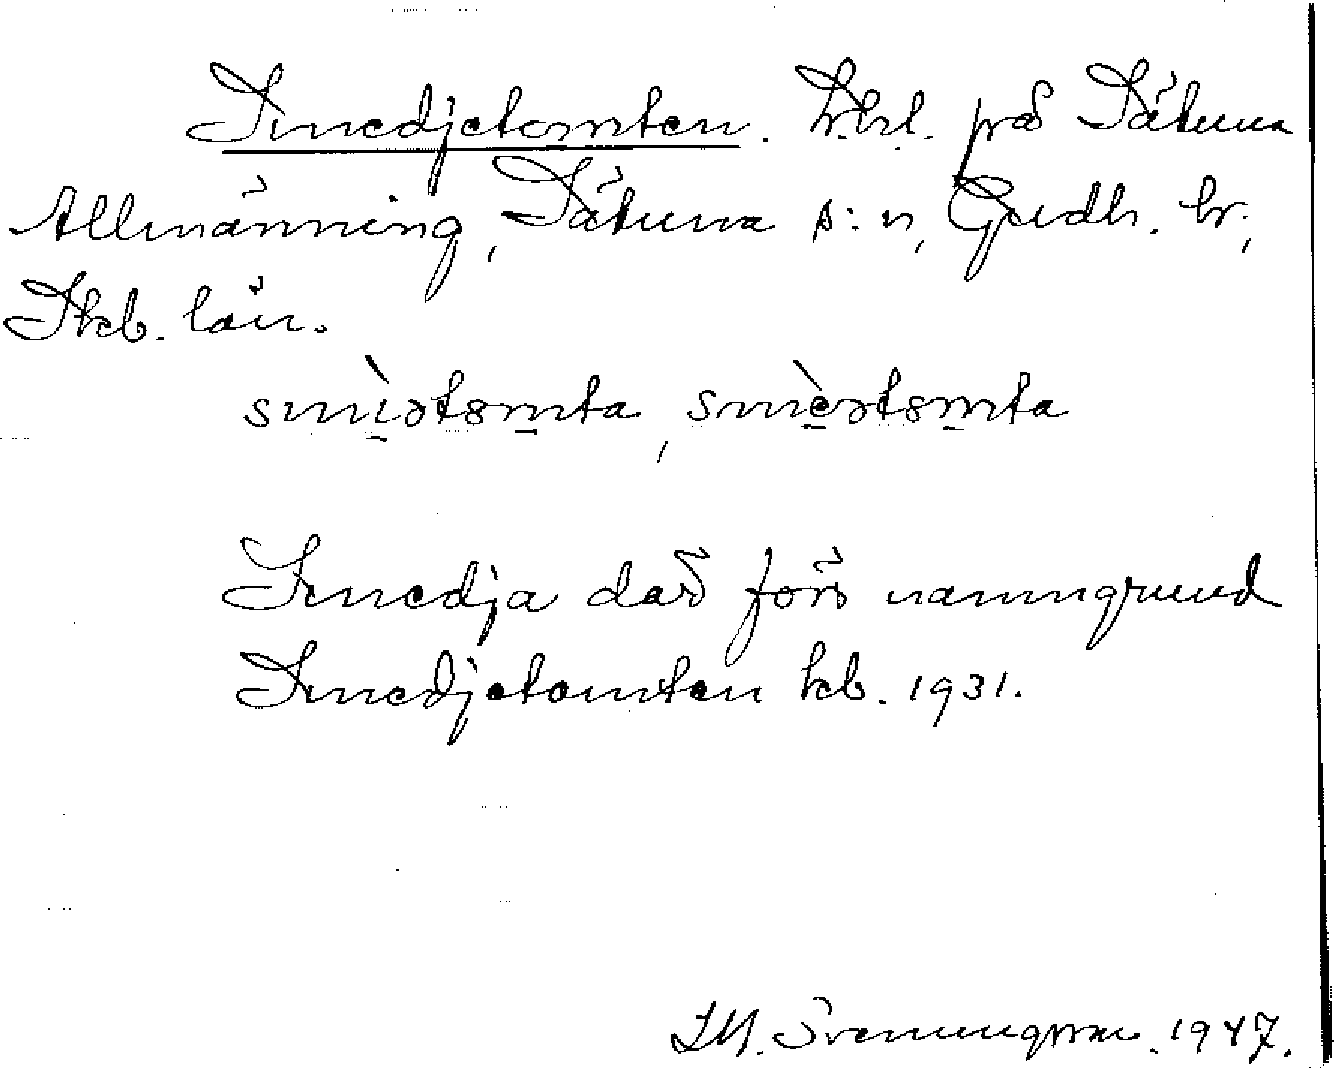 Smedjetomten. h.hl. på Sätuna
Allmänning, Sätuna s:n, Gudh. hr,
Skb. län.
smìətȣmta, smèətȣmta
Smedja där förr namngrund
Smedjetomten kb. 1931.
Sveningsson. 1947.